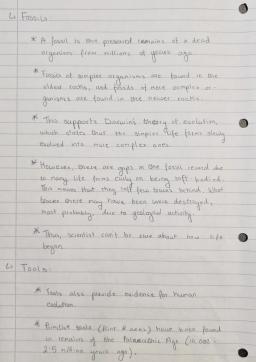 ↳ Fossils
* A fossil is the preserved remains of a dead
organism from millions of years ago.
* Fossils of simpler organisms are found in the
oldest rocks, and fossils of more complex or-
ganisms are found in the newer rocks.
* This supports Darwin's theory of evolution,
which states that the simpler life forms slowly
evolved into more complex ones.
* However, there are gaps in the fossil record due
to many life forms early on being soft bodied.
This means that they left few traces behind. What
traces there may have been were destroyed,
most probably, due to geological activity.
* Thus, scientist can't be sure about how life
began.
↳ Tools:
* Tools also provide evidence for human
evolution.
* Primitive tools (flint & axes) have been found
in remains of the Palaeolithic Age (10,000 -
2.5 million years ago).